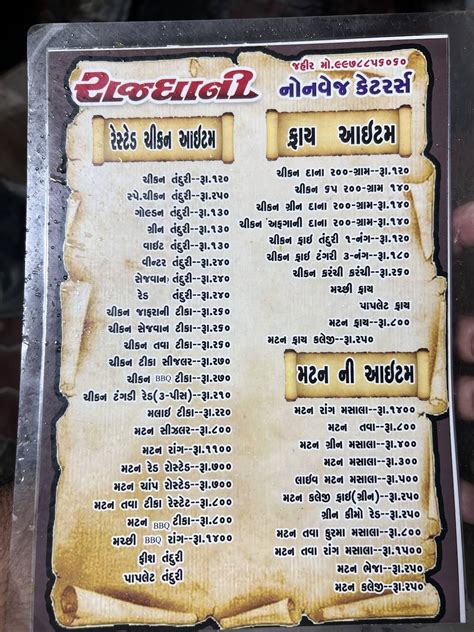 રાજધાની
જહીર મો.૯૯૭૮૮૫૬૦૬૦
નોનવેજ કેટરર્સ
રેસ્ટેડ ચીકન આઈટમ
ચીકન તંદુરી--રૂા.૧૨૦
સ્પે.ચીકન તંદુરી--રૂા.૨૫૦
ગોલ્ડન તંદુરી--રૂા.૧૩૦
ગ્રીન તંદુરી--રૂા.૧૩૦
વાઈટ તંદુરી--રૂા.૧૩૦
વીન્ટર તંદુરી--રૂા.૨૪૦
સેજવાન તંદુરી--રૂા.૨૪૦
રેડ તંદુરી--રૂા.૨૪૦
ચીકન જાફરાની ટીકા--રૂા.૨૬૦
ચીકન સેજવાન ટીકા--રૂા.૨૬૦
ચીકન તવા ટીકા--રૂા.૨૬૦
ચીકન ટીકા સીજલર--રૂા.૨૭૦
ચીકન BBQ ટીકા--રૂા.૨૭૦
ચીકન ટંગડી રેડ(૩-પીસ)--રૂા.૨૧૦
મલાઈ ટીકા--રૂા.૨૨૦
મટન સીઝલર--રૂા.૮૦૦
મટન રાંગ--રૂા.૧૧૦૦
મટન રેડ રોસ્ટેડ--રૂા.૭૦૦
મટન ચાંપ રોસ્ટેડ--રૂા.૭૦૦
મટન તવા ટીકા રેસ્ટેટ--રૂા.૮૦૦
મટન BBQ ટીકા--રૂા.૮૦૦
મચ્છી BBQ રાંગ--રૂા.૧૪૦૦
ફીશ તંદુરી
પાપલેટ તંદુરી
ફ્રાય આઈટમ
ચીકન દાના ૨૦૦-ગ્રામ--રૂા.૧૨૦
ચીકન કપ ૨૦૦-ગ્રામ ૧૪૦
ચીકન ગ્રીન દાના ૨૦૦-ગ્રામ--રૂા.૧૪૦
ચીકન અફગાની દાના ૨૦૦-ગ્રામ--રૂા.૧૪૦
ચીકન ફ્રાઈ તંદુરી ૧-નંગ--રૂા.૧૨૦
ચીકન ફ્રાઈ ટંગરી ૩-નંગ--રૂા.૧૮૦
ચીકન કરંચી ફ્રાય--રૂા.૨૬૦
મચ્છી ફ્રાય
પાપલેટ ફ્રાય
મટન ફ્રાય--રૂા.૮૦૦
મટન ફ્રાય કલેજી--રૂા.૨૫૦
મટન ની આઈટમ
મટન રાંગ મસાલા--રૂા.૧૪૦૦
મટન તવા--રૂા.૮૦૦
મટન ગ્રીન મસાલા--રૂા.૪૦૦
મટન મસાલા--રૂા.૩૦૦
લાઈવ મટન મસાલા--રૂા.૫૦૦
મટન કલેજી ફ્રાઈ(ગ્રીન)--રૂા.૨૫૦
ગ્રીન કીમો રેડ--રૂા.૨૫૦
મટન તવા કુરમા મસાલા--રૂા.૮૦૦
મટન તવા રાંગ મસાલા--રૂા.૧૫૦૦
મટન ભેજા--રૂા.૨૫૦
મટન કલેજી--રૂા.૨૫૦